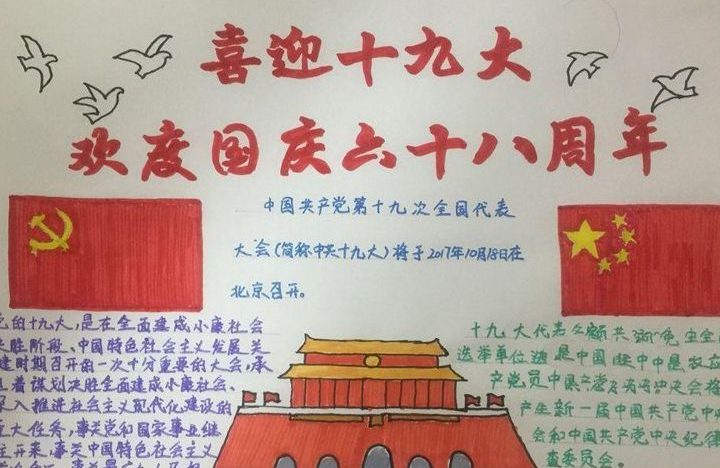 喜迎十九大
欢度国庆六十八周年
中国共产党第十九次全国代表
大会(简称中共十九大)将于2017年10月18日在
北京召开。
党的十九大,是在全面建成小康社会
决胜阶段、中国特色社会主义发展关
键时期召开的一次十分重要的大会,承
担着谋划决胜全面建成小康社会、
深入推进社会主义现代化建设的
重大任务,事关党和国家事业继
往开来,事关中国特色社会主义
十九大代表
选举单位
产党员
产生新一届中国共产党中
会和中国共产党中央纪律
查委员会。